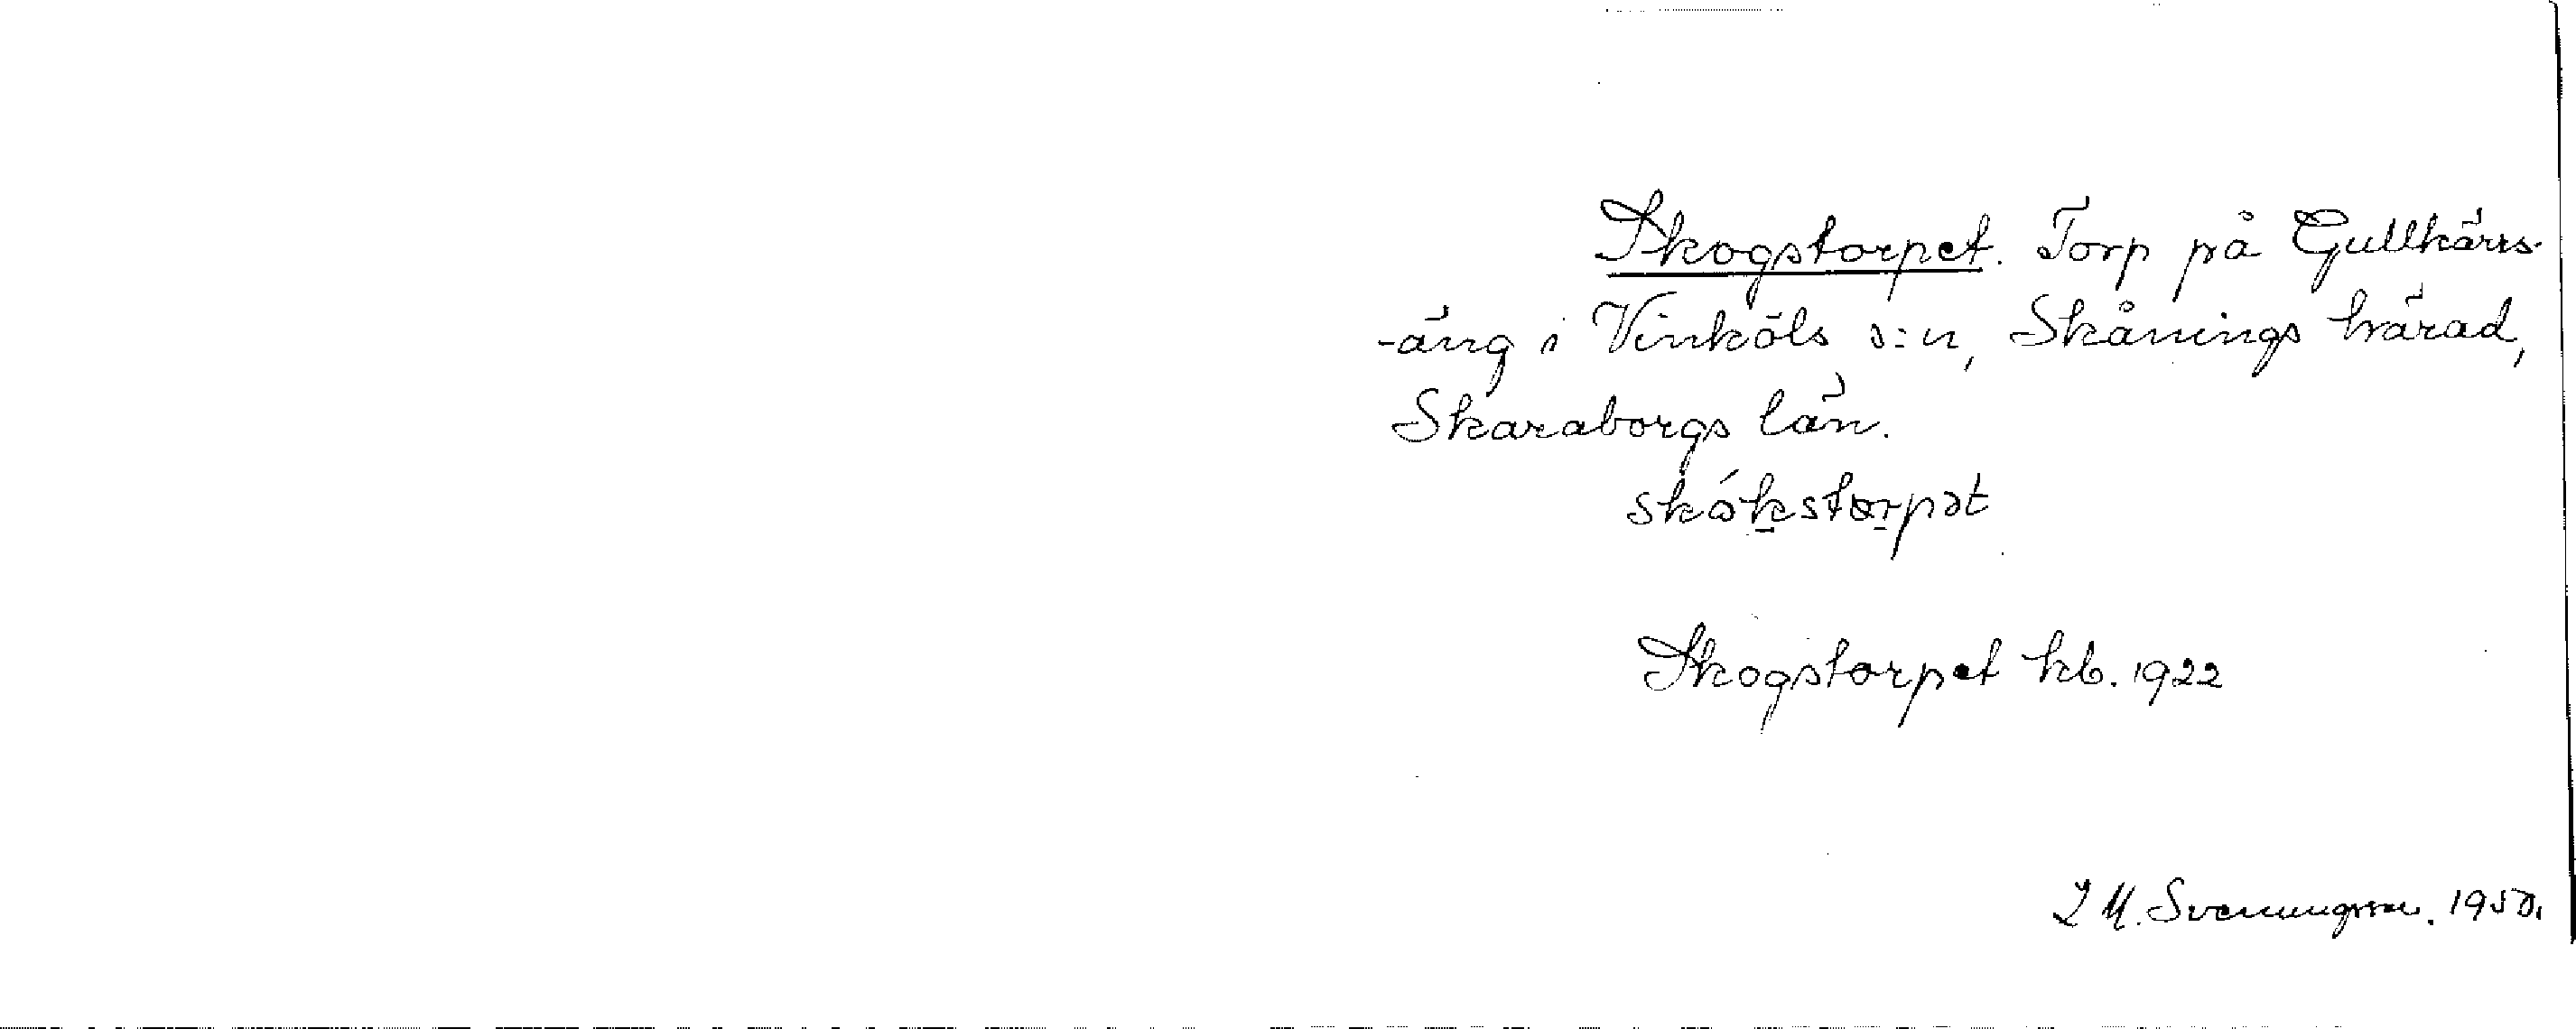 Skogstorpet. Torp på Gullkärrs-
-äng i Vinköls s:n, Skånings härad,
Skaraborgs län.
skókstorpət
Skogstorpet kb. 1922
I M. Svenungsson. 1950.